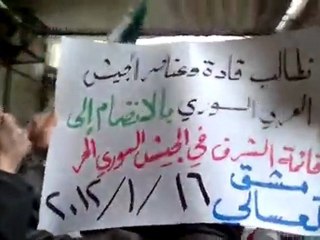 نطالب قادة وعناصر الجيش
العربي السوري بالانضمام إلى
قائمة الشرف في الجيش السوري الحر
دمشق ٢٠١٢/١/١٦
العسالي